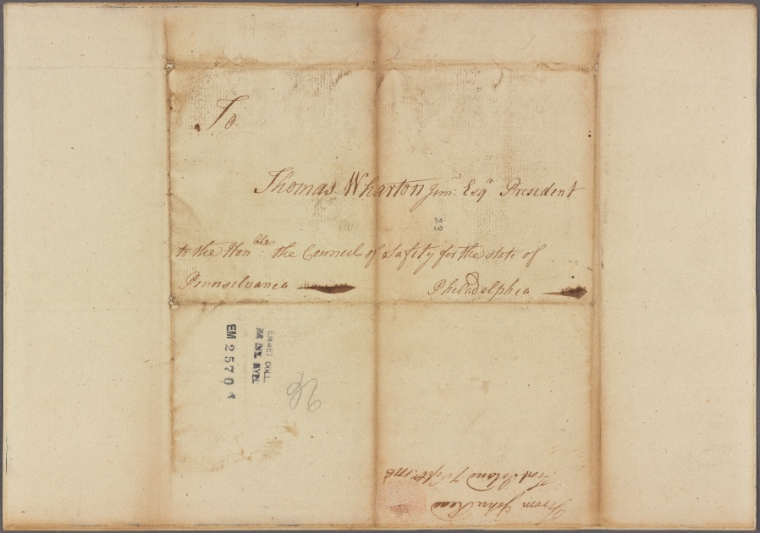 To
Thomas Wharton Junr. Esqr President
23
to the Honble: the Council of Safety for the state of
Pennsylvanea
Philadelphia
EMMET COLL
EM 2570
From John
7 Septr. 1776